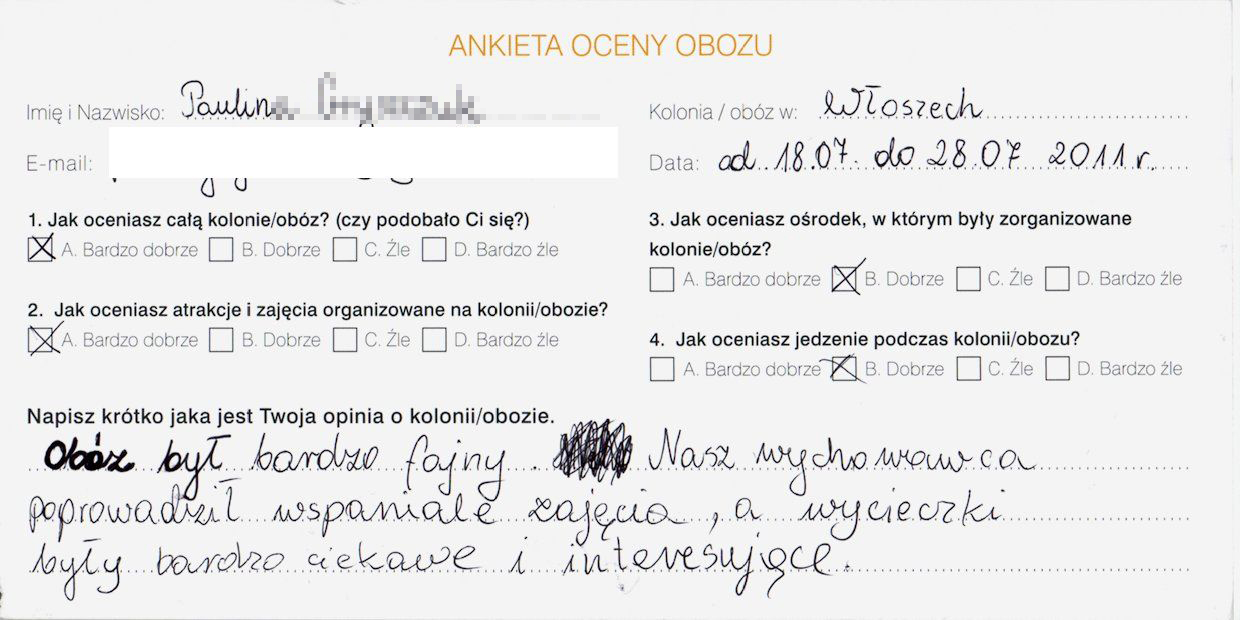 ANKIETA OCENY OBOZU
Imię i Nazwisko: Paulina
Kolonia / obóz w: Włoszech
E-mail:
Data: od 18.07. do 28.07 2011 r.
1. Jak oceniasz całą kolonie/obóz? (czy podobało Ci się?)
A. Bardzo dobrze B. Dobrze C. Źle D. Bardzo źle
2. Jak oceniasz atrakcje i zajęcia organizowane na kolonii/obozie?
A. Bardzo dobrze B. Dobrze C. Źle D. Bardzo źle
3. Jak oceniasz ośrodek, w którym były zorganizowane
kolonie/obóz?
A. Bardzo dobrze B. Dobrze C. Źle D. Bardzo źle
4. Jak oceniasz jedzenie podczas kolonii/obozu?
A. Bardzo dobrze B. Dobrze C. Źle D. Bardzo źle
Napisz krótko jaka jest Twoja opinia o kolonii/obozie.
Obóz był bardzo fajny. Nasz wychowawca
poprowadził wspaniałe zajęcia, a wycieczki
były bardzo ciekawe i interesujące.